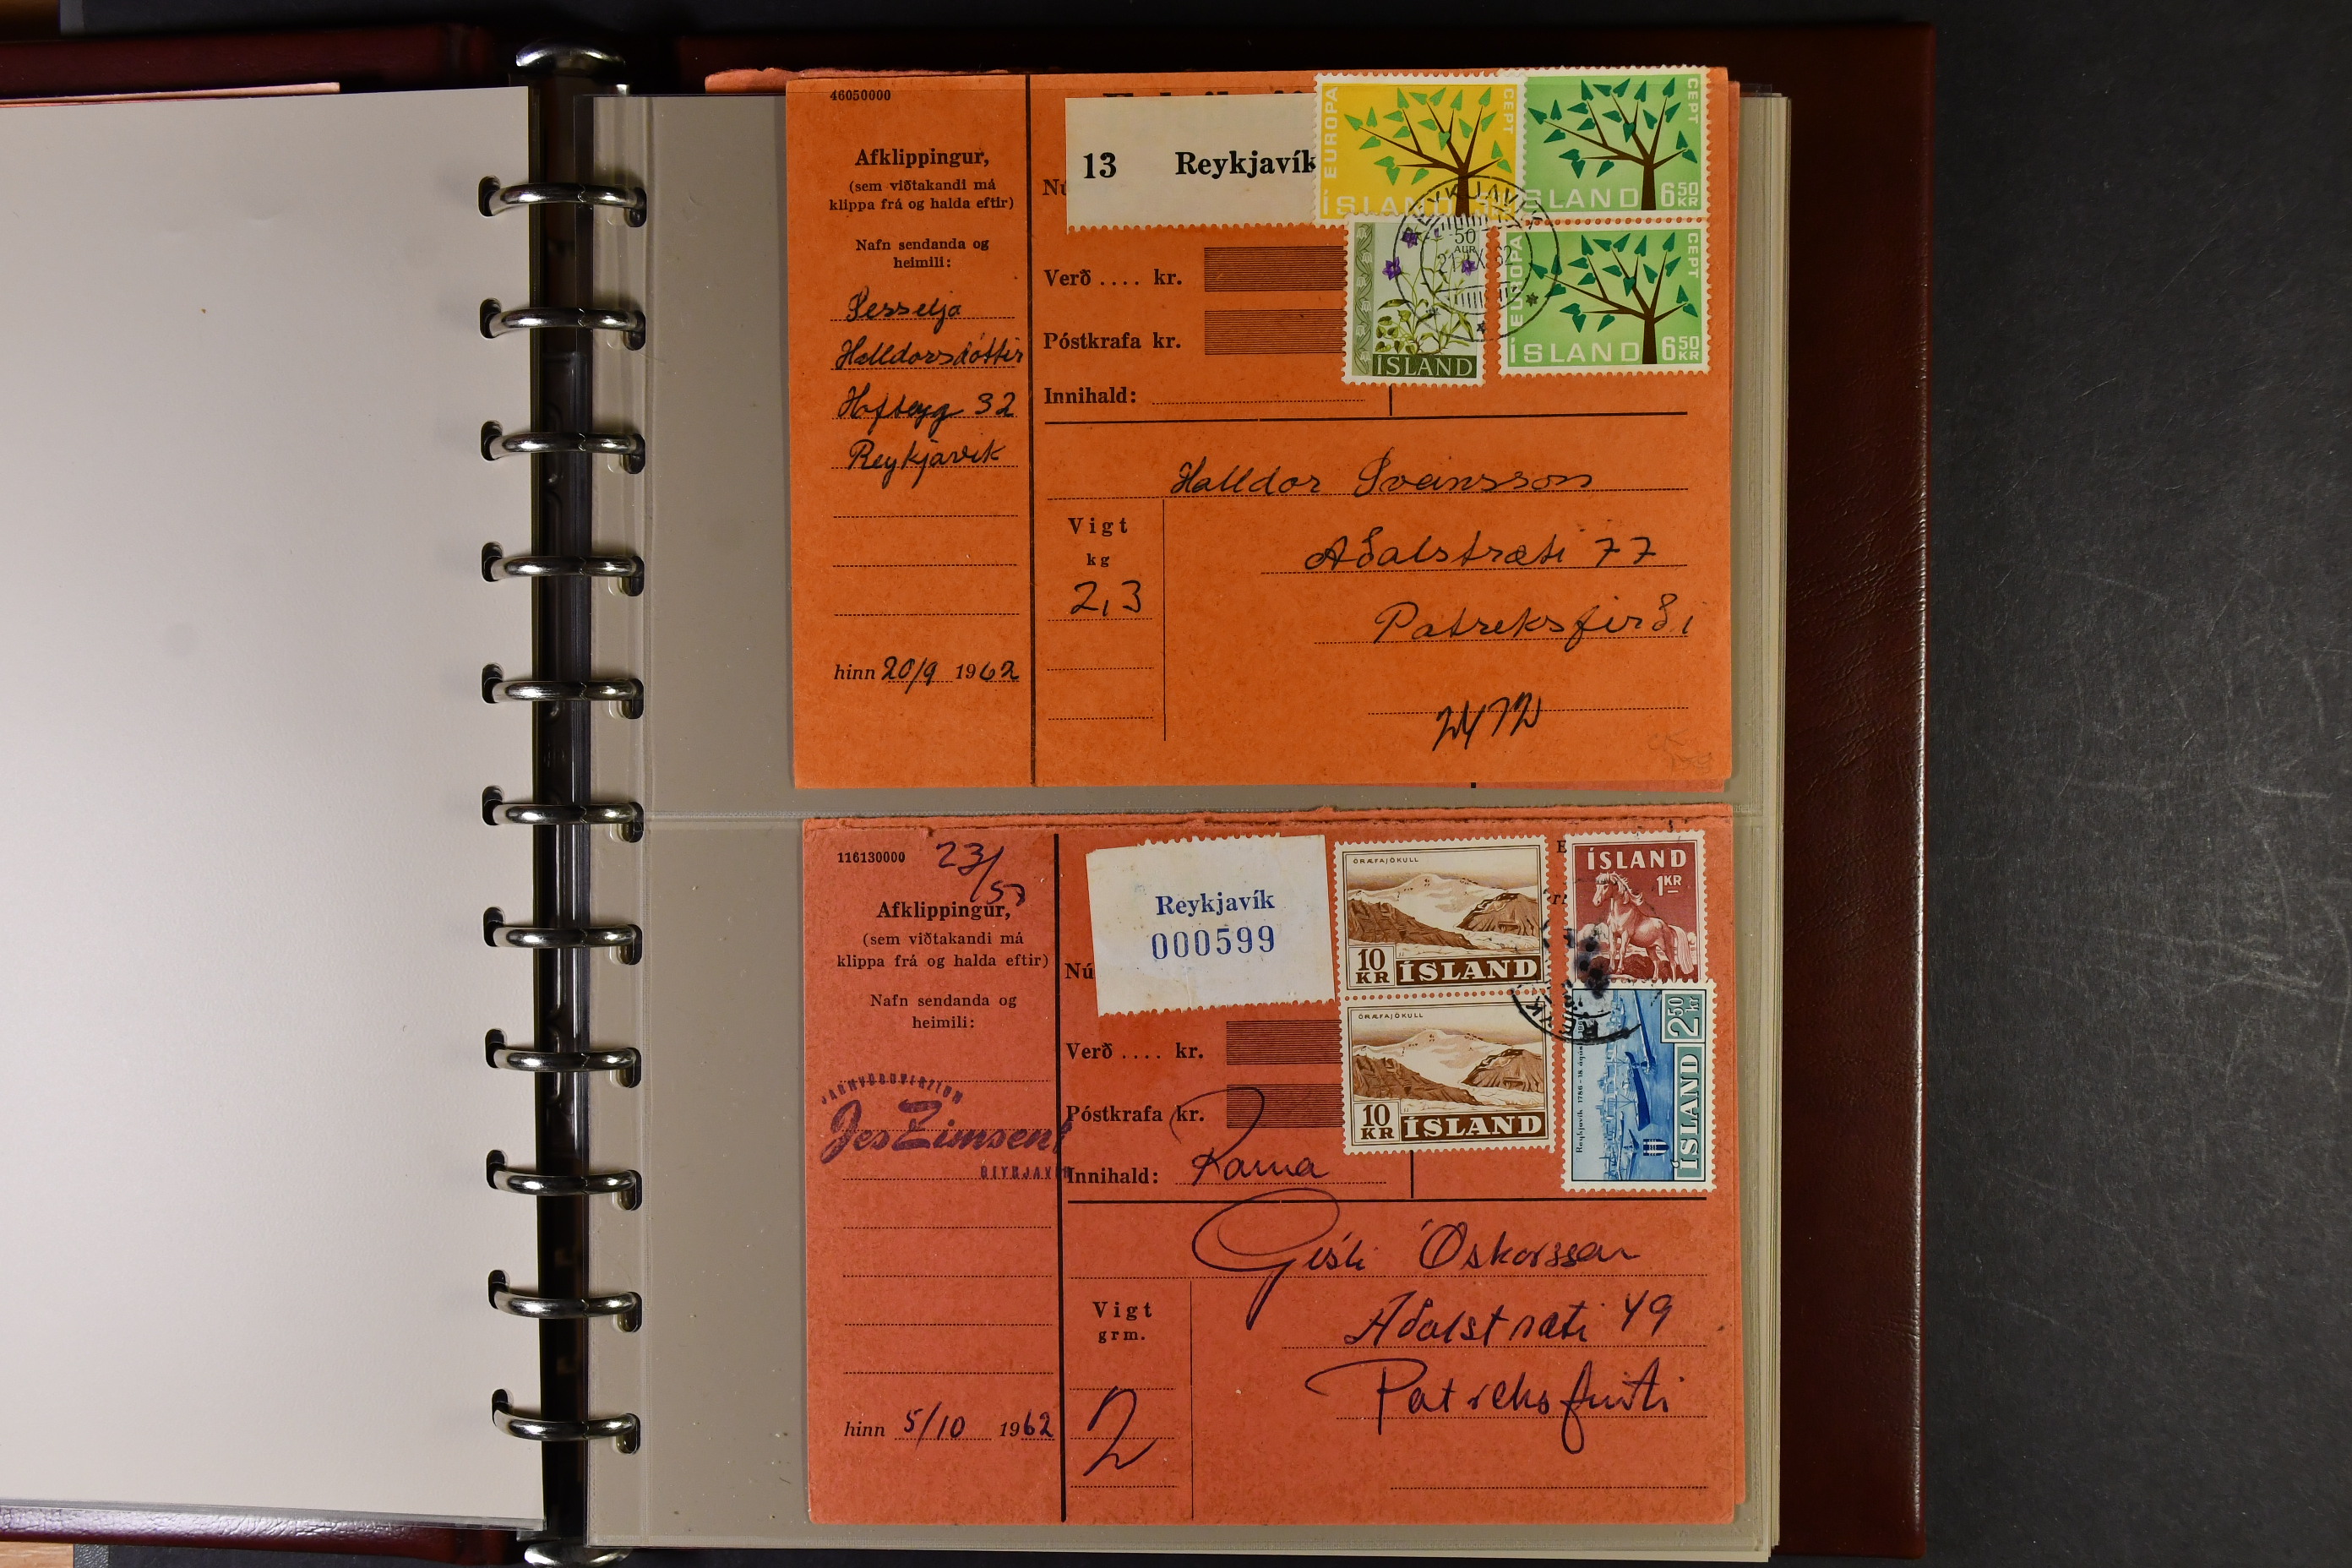 46050000
Afklippingur,
(sem viðtakandi má
klippa frá og halda eftir)
Nafn sendanda og
heimili:
Sesselja
Halldorsdóttir
32
Reykjavik
hinn 20/9 1962
13 Reykjavík
Verð .... kr.
Póstkrafa kr.
Innihald:
EUROPA CEPT
ÍSLAND
CEPT
ÍSLAND 6 50 KR
EUROPA CEPT
ÍSLAND 6 50 KR
50 AUR
ÍSLAND
REYKJAVIK
Halldor Sveinsson
Vigt
kg
2,3
Aðalstræti 77
Patreksfirði
2472
116130000
23/57
Afklippingur,
(sem viðtakandi má
klippa frá og halda eftir)
Nafn sendanda og
heimili:
Jes Zimsen
hinn 5/10 1962
Reykjavík
000599
Nú
Verð .... kr.
Póstkrafa kr.
Innihald:
ÖRÆFAJÖKULL
10 KR ÍSLAND
ÖRÆFAJÖKULL
10 KR ÍSLAND
ÍSLAND
1 KR
ÍSLAND 2 50 kr
Gísli Óskarsson
Vigt
grm.
2
Aðalstræti 49